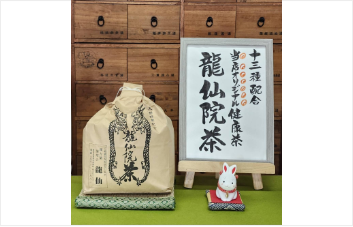 十三種配合
当店オリジナル健康茶
龍仙院茶
龍仙院茶
龍仙